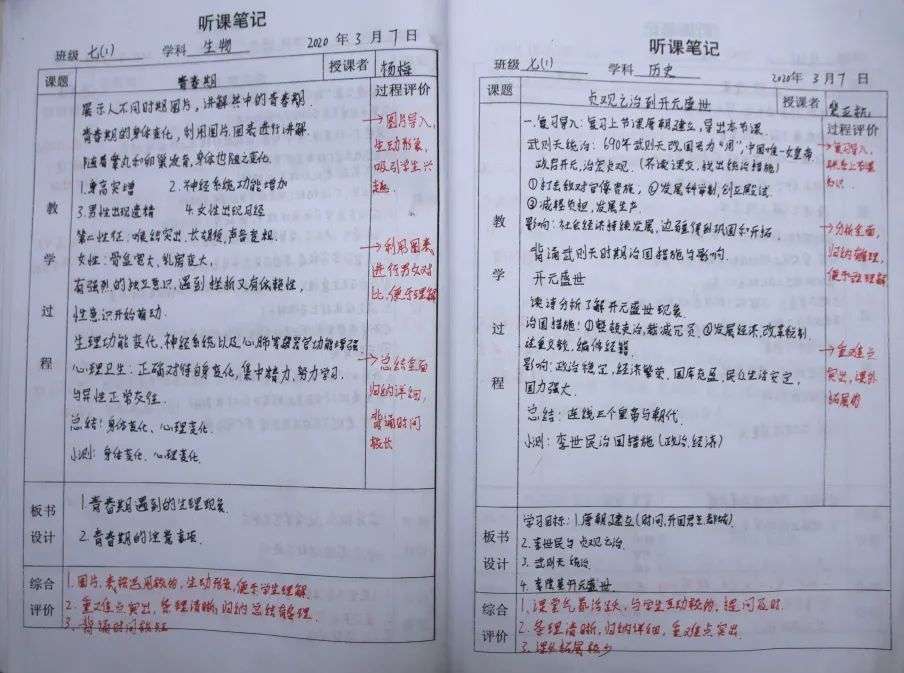 听课笔记
班级 七(1) 学科 生物 2020 年 3 月 7 日
课题 青春期 授课者 杨梅
教学过程
过程评价
展示人不同时期图片，讲解其中的青春期．
青春期的身体变化，利用图片，图表进行讲解．
随着睾丸和卵巢发育，身体也随之变化．
1.身高突增 2.神经系统功能增加
3.男性出现遗精 4.女性出现月经
第二性征：喉结突出，长胡须，声音变粗．
女性：骨盆宽大，乳房变大，
有强烈的独立意识，遇到挫折又有依赖性，
性意识开始萌动．
生理功能变化，神经系统以及心肺等器官功能增强．
心理卫生：正确对待自身变化，集中精力，努力学习．
与异性正常交往．
总结：身体变化、心理变化．
小测：身体变化、心理变化．
→图片导入，
生动形象，
吸引学生兴
趣．
→利用图表
进行男女对
比，便于理解
→总结全面
归纳详细，
背诵时间
较长
板书设计
1.青春期遇到的生理现象．
2.青春期的注意事项．
综合评价
1.图片，表格运用较好，生动形象，便于学生理解．
2.重难点突出，条理清晰，归纳总结有条理．
3.背诵时间较短
听课笔记
班级 七(1) 学科 历史 2020年 3 月 7 日
课题 贞观之治到开元盛世 授课者
教学过程
过程评价
一.复习导入：复习上节课唐朝建立，导出本节课．
武则天统治：690年武则天改国号为“周”，中国唯一女皇帝，
政启开元，治宏贞观．（齐读课文，找出统治措施）
①打击敌对官僚贵族；②发展科举制，创立殿试．
③减轻负担，发展生产．
影响：社会经济持续发展，边疆得到巩固和开拓．
背诵武则天时期治国措施与影响．
开元盛世
读诗分析了解开元盛世现象．
治国措施：①整顿吏治，裁减冗员．②发展经济，改革税制．
注重文教，编修经籍．
影响：政治稳定，经济繁荣．国库充盈，民众生活安定，
国力强大．
总结：连线三个皇帝与朝代．
小测：李世民治国措施（政治．经济）
→复习导入，
联系上节课
知识．
→分析全面，
归纳有条理，
便于学生理解
→重难点
突出，课外
拓展好
板书设计
学习目标：1.唐朝建立（时间，开国君主，都城）．
2.李世民与贞观之治．
3.武则天统治．
4.李隆基开元盛世．
综合评价
1.课堂气氛活跃，与学生互动较好，提问及时．
2.条理清晰，归纳详细，重难点突出．
3.课外拓展较少